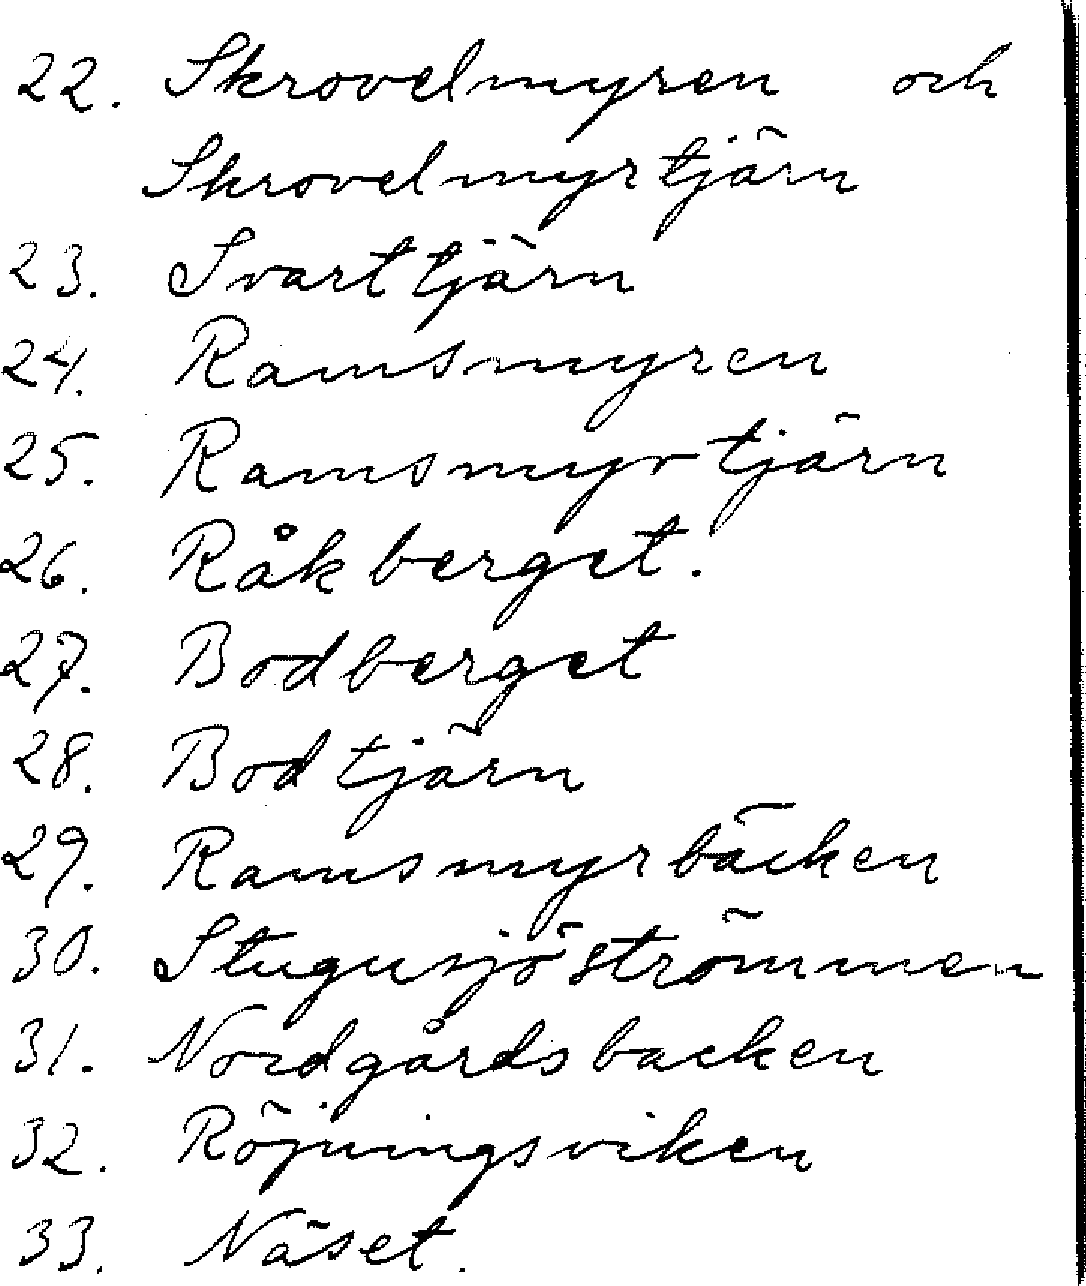 22. Skrovelmyren och
Skrovelmyrtjärn
23. Svarttjärn
24. Ramsmyren
25. Ramsmyrtjärn
26. Råkberget.
27. Bodberget
28. Bodtjärn
29. Ramsmyrbäcken
30. Stugusjöströmmen
31. Nordgårdsbacken
32. Röjningsviken
33. Näset.